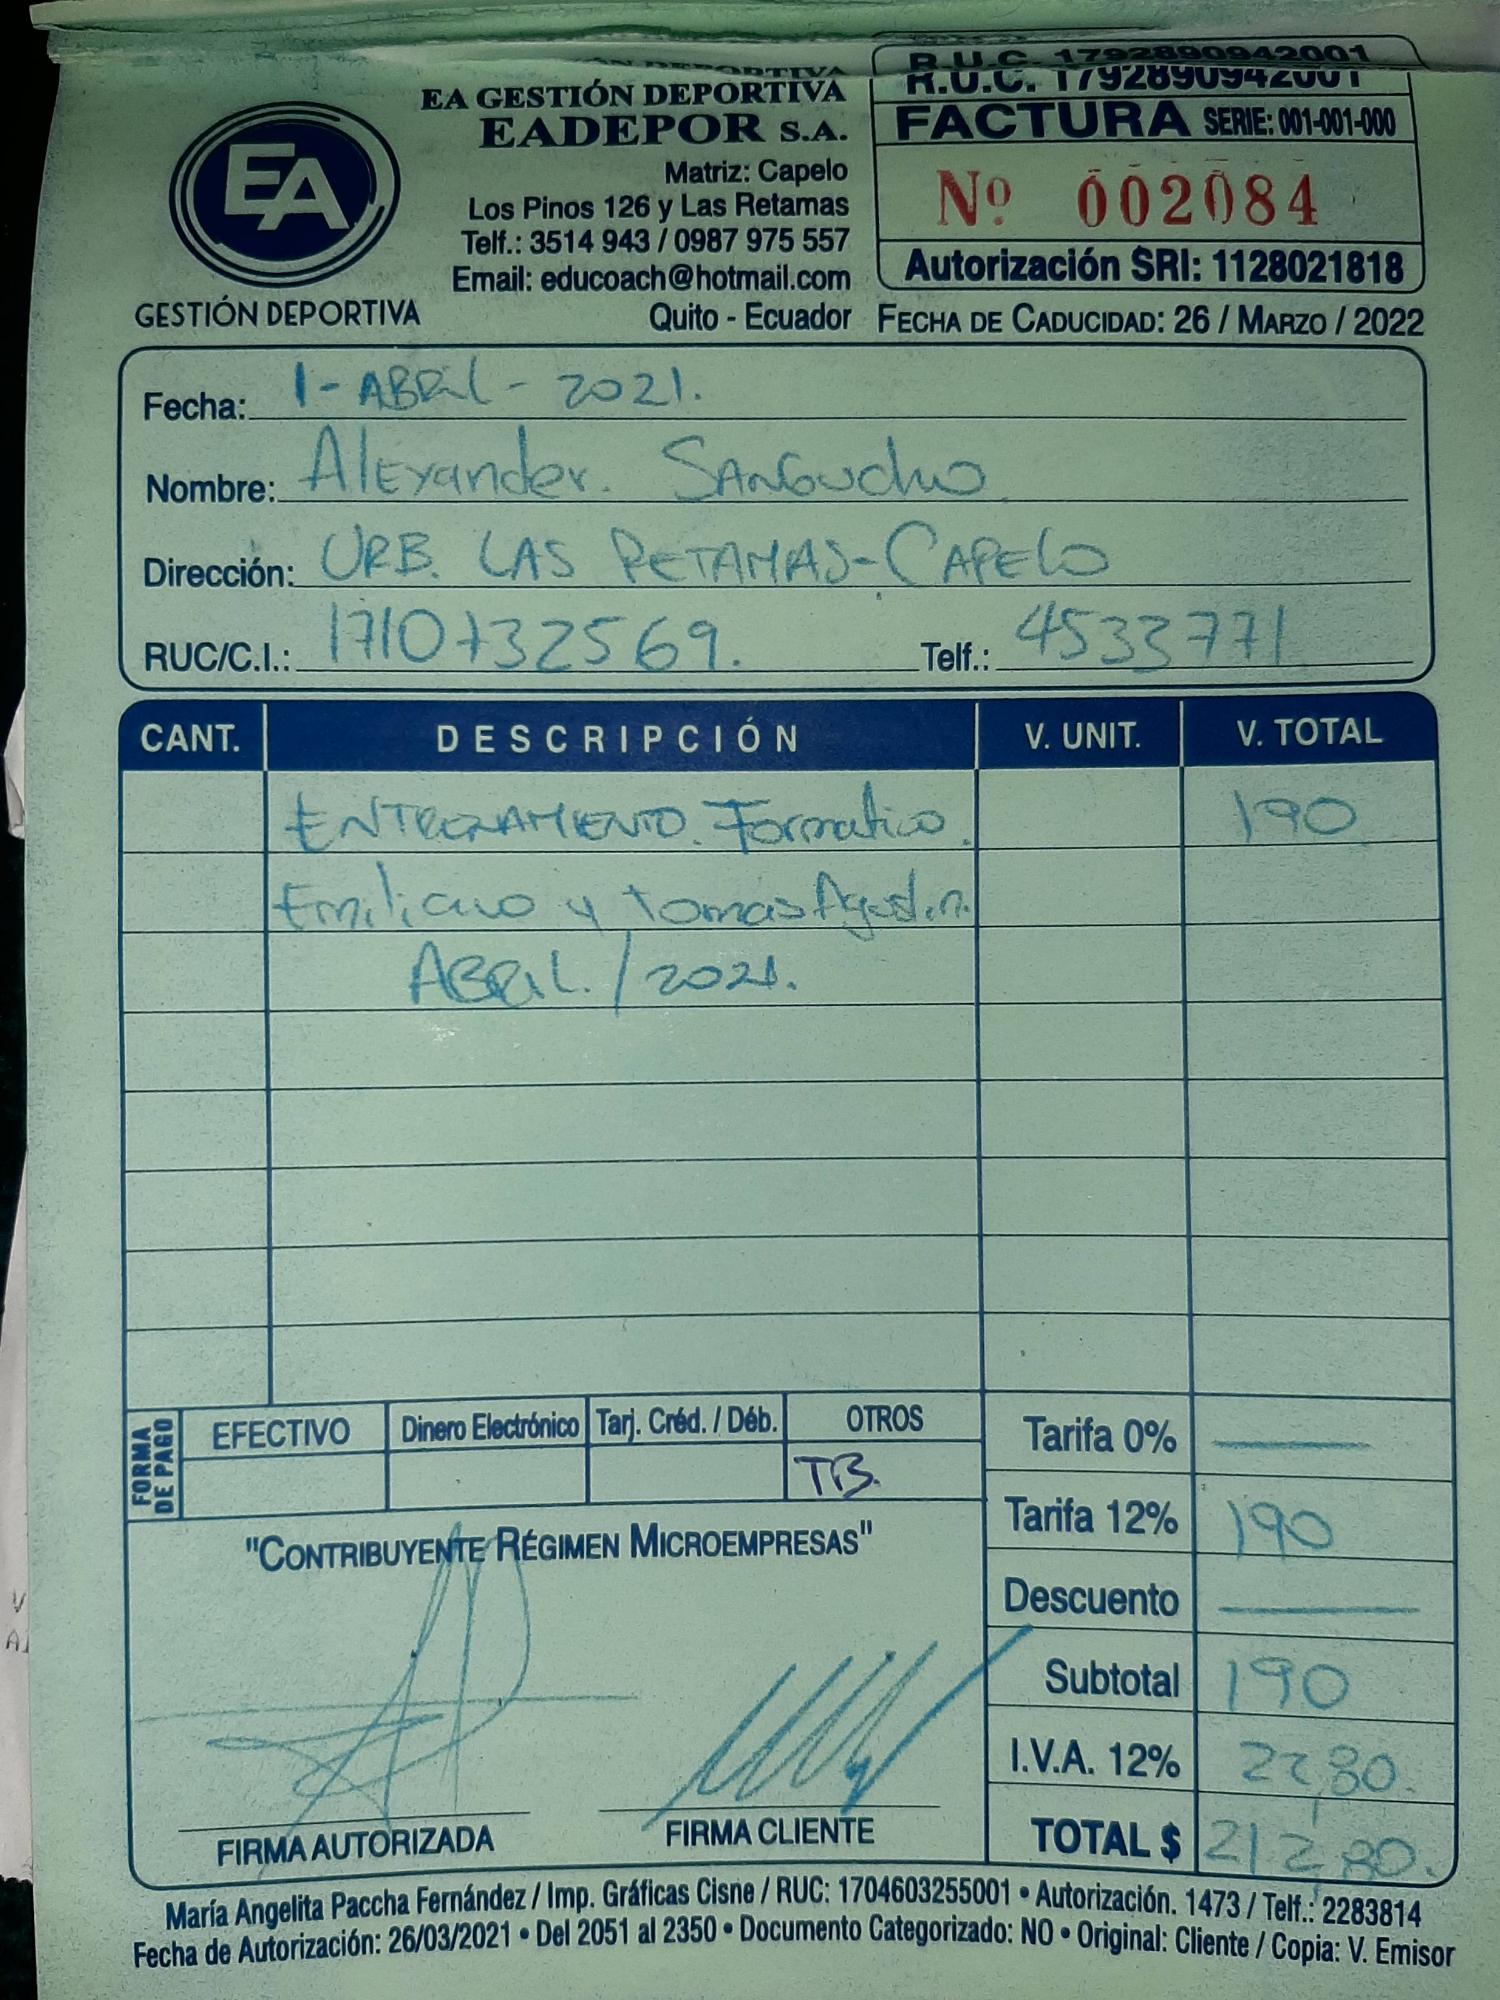 R.U.C. 1792890942001
R.U.C. 1792890942001
EA GESTIÓN DEPORTIVA
EADEPOR S.A.
Matriz: Capelo
Los Pinos 126 y Las Retamas
Telf.: 3514 943 / 0987 975 557
Email: educoach@hotmail.com
Quito - Ecuador
EA
GESTIÓN DEPORTIVA
FACTURA SERIE: 001-001-000
Nº 002084
Autorización SRI: 1128021818
FECHA DE CADUCIDAD: 26 / MARZO / 2022
Fecha: 1-ABRIL-2021.
Nombre: Alexander. SANGUCHO
Dirección: URB. LAS RETAMAS-CAPELO
RUC/C.I.: 1710732569. Telf.: 4533771
CANT. DESCRIPCIÓN V. UNIT. V. TOTAL
ENTRENAMIENTO Formativo. 190
Emiliano y Tomas Agustin.
ABRIL/2021.
FORMA DE PAGO EFECTIVO Dinero Electrónico Tarj. Créd. / Déb. OTROS
TB.
Tarifa 0% —
Tarifa 12% 190
Descuento —
Subtotal 190
I.V.A. 12% 22,80.
TOTAL $ 212,80.
"CONTRIBUYENTE RÉGIMEN MICROEMPRESAS"
FIRMA AUTORIZADA FIRMA CLIENTE
María Angelita Paccha Fernández / Imp. Gráficas Cisne / RUC: 1704603255001 • Autorización. 1473 / Telf.: 2283814
Fecha de Autorización: 26/03/2021 • Del 2051 al 2350 • Documento Categorizado: NO • Original: Cliente / Copia: V. Emisor